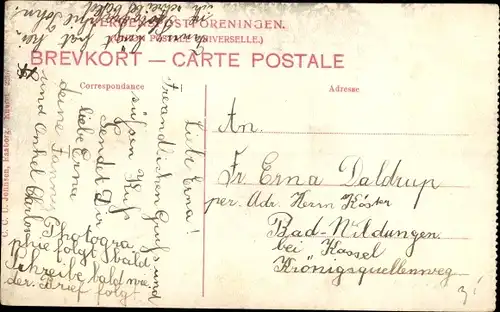 POSTFORENINGEN.
(UNION POSTALE UNIVERSELLE.)
BREVKORT — CARTE POSTALE
Correspondance
Adresse
Liebe Erna!
Freundlichen Gruß und
süßen Kuß
Sendet Dir
liebe Erma
deine Fanny
und Onkel
Photogra
phie folgt bald
Schreibe bald wie
der. Brief folgt.
An.
Fr. Erna Daldrup
per. Adr. Herrn Köster
Bad-Wildungen.
bei Kassel
Krönigsquellenweg